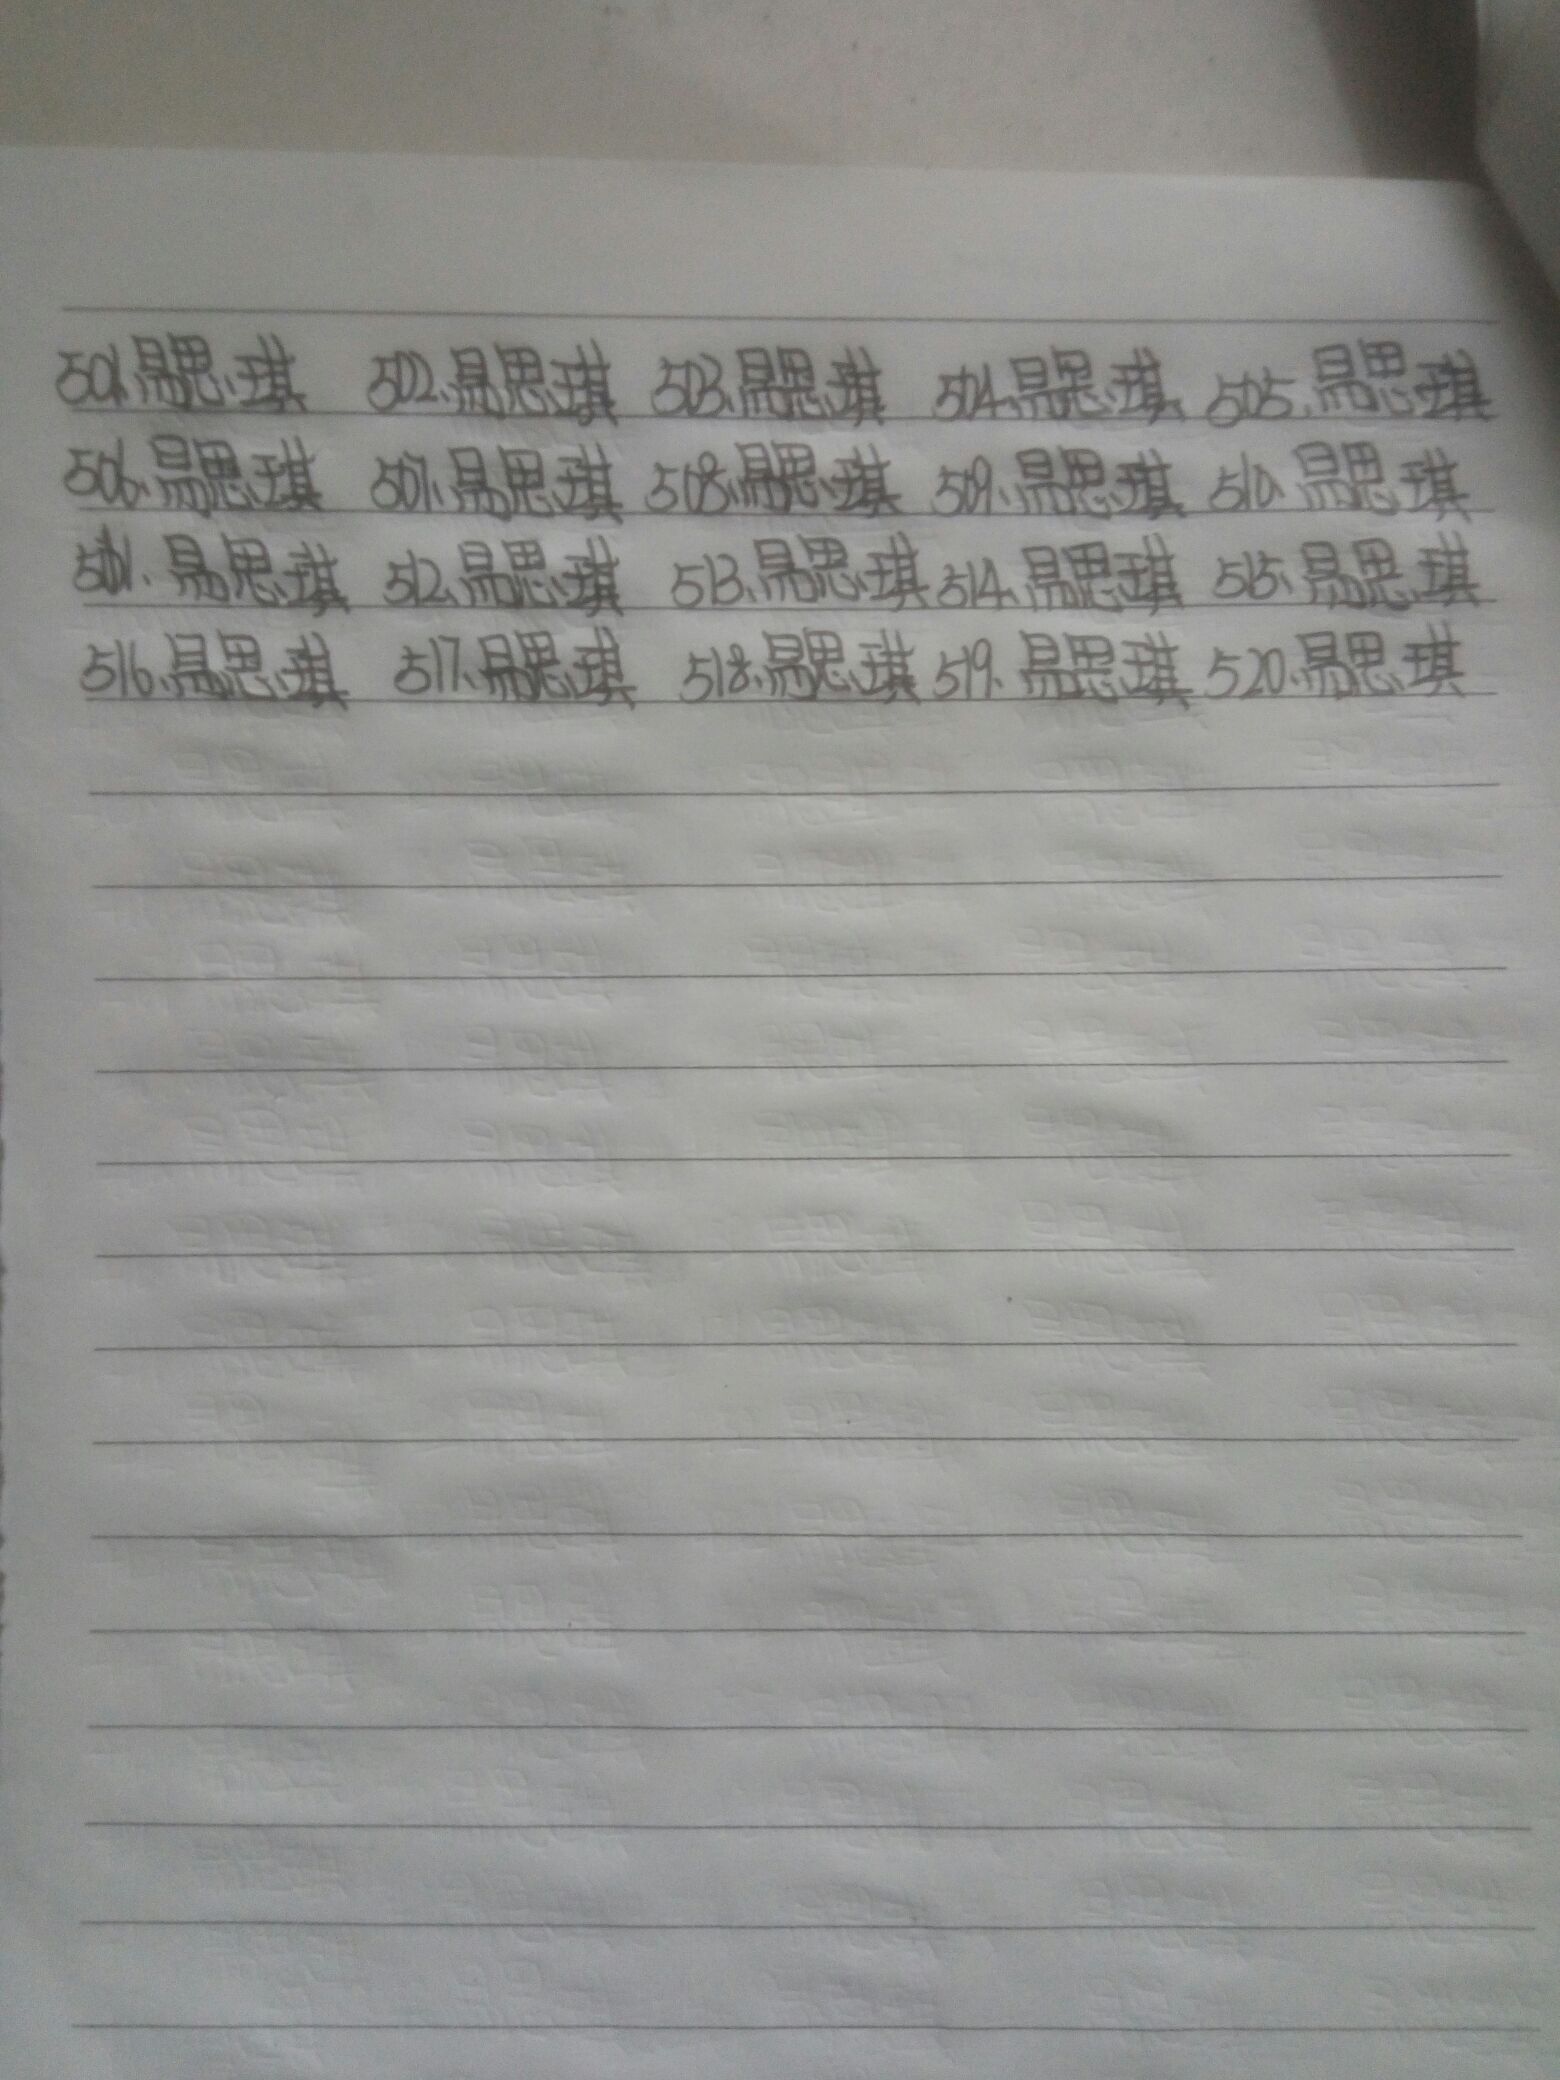 501.易思琪 502.易思琪 503.易思琪 504.易思琪 505.易思琪
506.易思琪 507.易思琪 508.易思琪 509.易思琪 510.易思琪
511.易思琪 512.易思琪 513.易思琪 514.易思琪 515.易思琪
516.易思琪 517.易思琪 518.易思琪 519.易思琪 520.易思琪